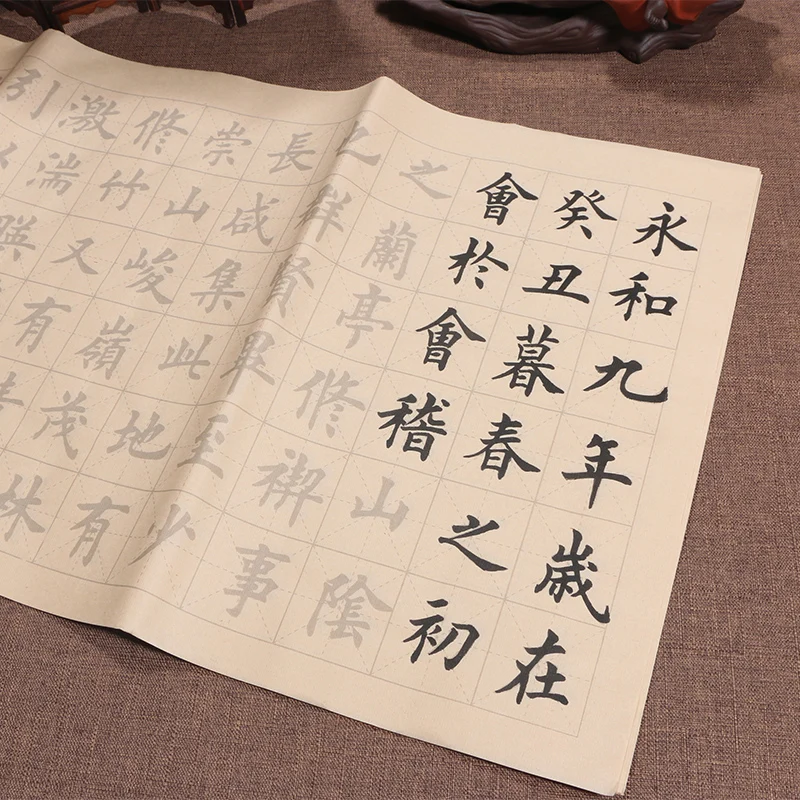 永和九年歲在
癸丑暮春之初
會於會稽山陰
之蘭亭修禊事
群賢畢至少
長咸集此地有
崇山峻嶺茂林
修竹又有
激湍映
引